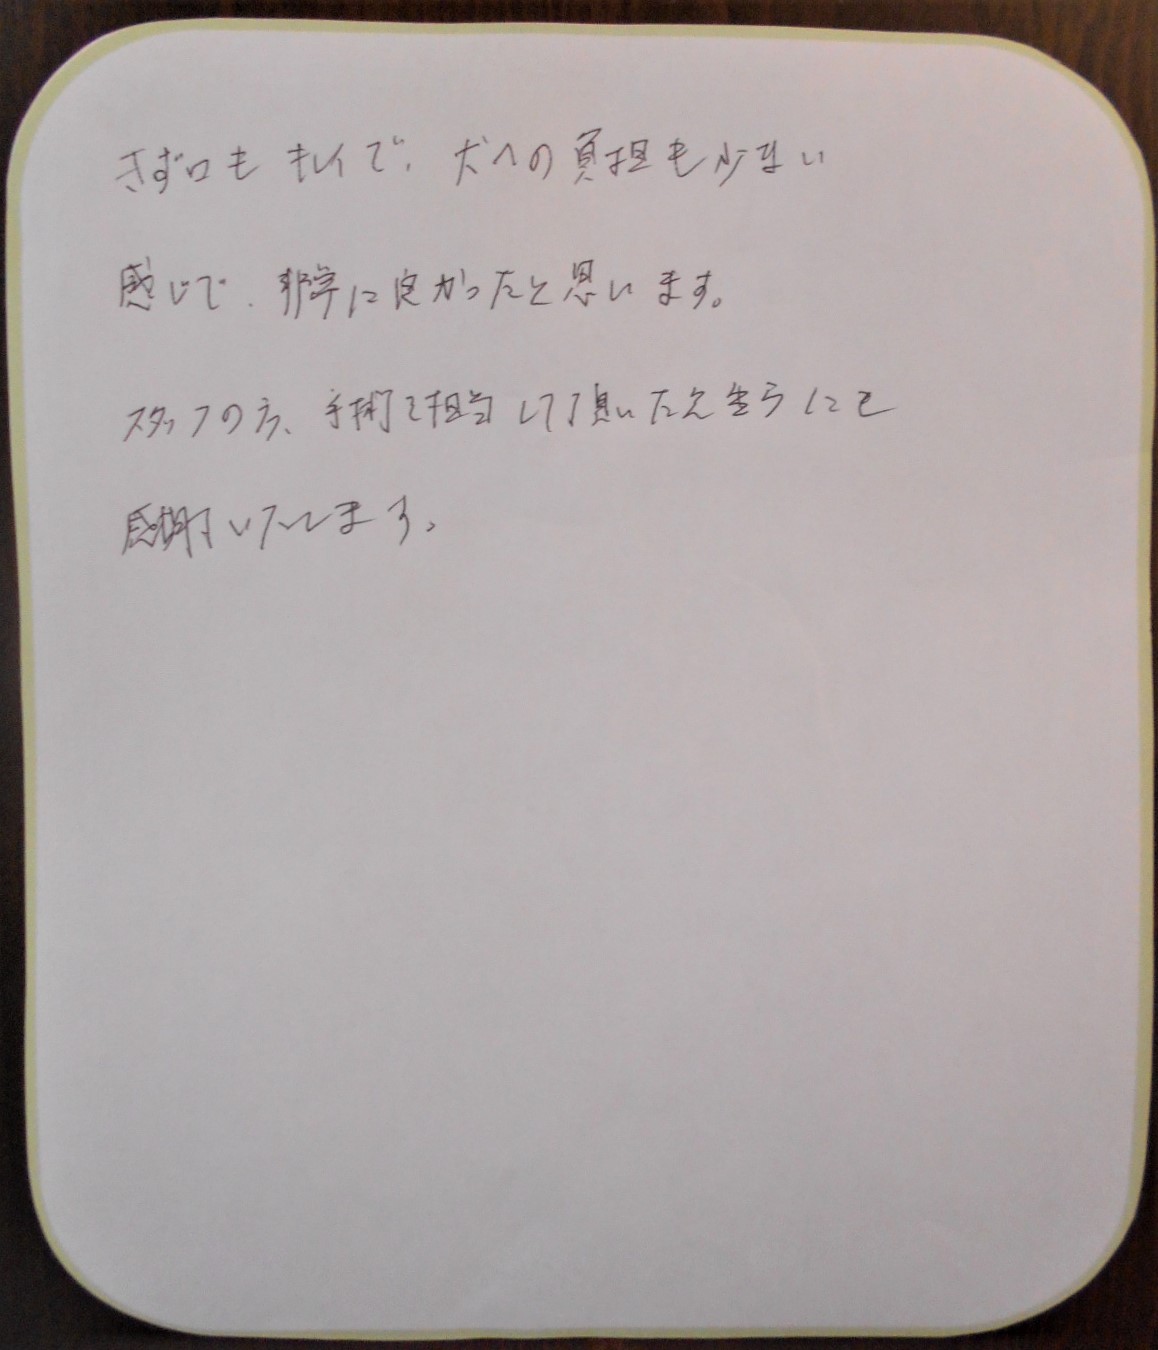 きず口も キレイで、犬への負担も少ない
感じで、非常に良かったと思います。
スタッフの方、手術を担当して頂いた先生方にも
感謝いたします。